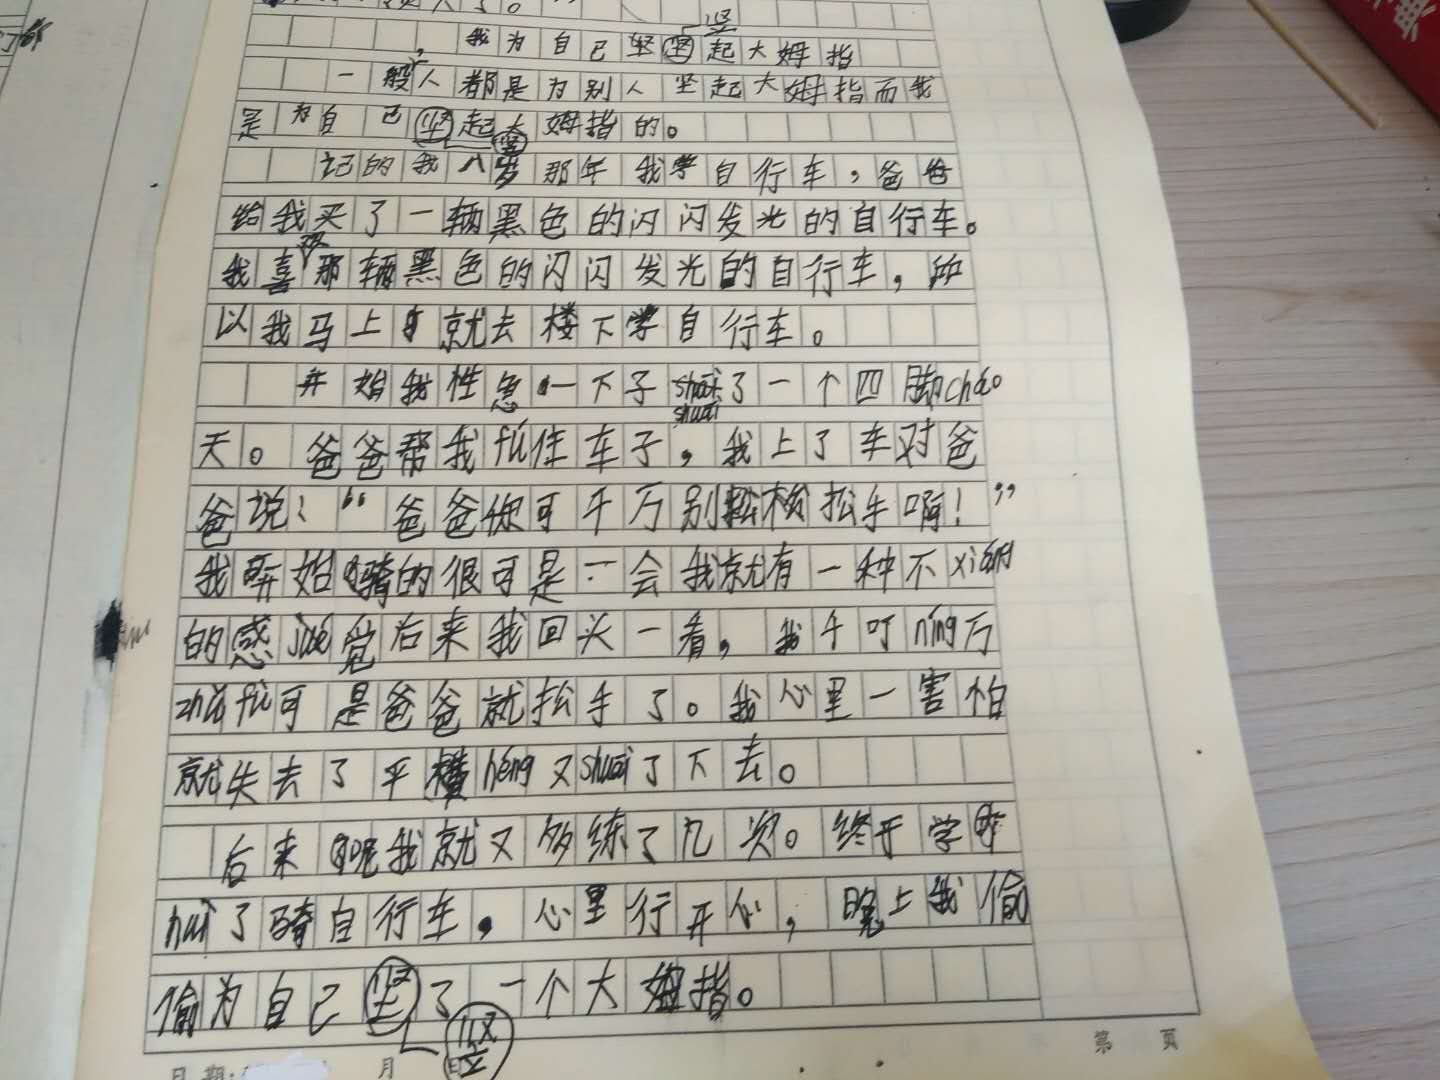 我为自己坚起大姆指
一般人都是为别人坚起大姆指而我
是为自己坚起大姆指的。
记的我八岁那年我学自行车，爸爸
给我买了一辆黑色的闪闪发光的自行车。
我喜欢那辆黑色的闪闪发光的自行车，所
以我马上就去楼下学自行车。
开始我性急一下子shuāi了一个四脚cháo
天。爸爸帮我fú住车子，我上了车对爸
爸说：“爸爸你可千万别松手啊！”
我开始骑的很可是一会我就有一种不xiáng
的感jué觉后来我回头一看，我千叮níng万
zhǔ fù可是爸爸就松手了。我心里一害怕
就失去了平横héng又shuāi了下去。
后来呢我就又多练了几次。终于学
huì了骑自行车，心里行开心，晚上我偷
偷为自己坚了一个大姆指。
竖
日期： 月 日
第 页